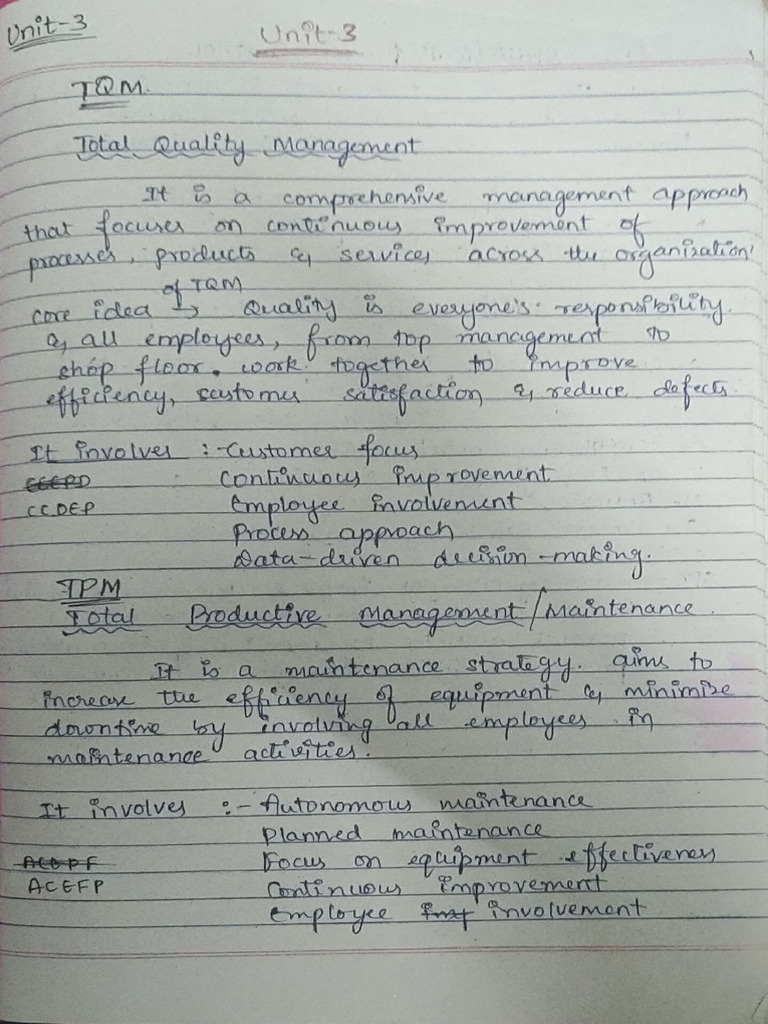 Unit-3
Unit-3
TQM
Total Quality Management
It is a comprehensive management approach
that focuses on continuous improvement of
processes, products & services across the organization
of TQM
core idea → Quality is everyone's responsibility.
& all employees, from top management to
shop floor. work together to improve
efficiency, customer satisfaction & reduce defects
It involves :- Customer focus
CCEPD Continuous improvement
CCDEP Employee involvement
Process approach
Data-driven decision-making.
TPM
Total Productive Management/Maintenance.
It is a maintenance strategy. aims to
increase the efficiency of equipment & minimize
downtime by involving all employees in
maintenance activities.
It involves :- Autonomous maintenance
Planned maintenance
Focus on equipment effectiveness
ACEFP Continuous improvement
Employee involvement